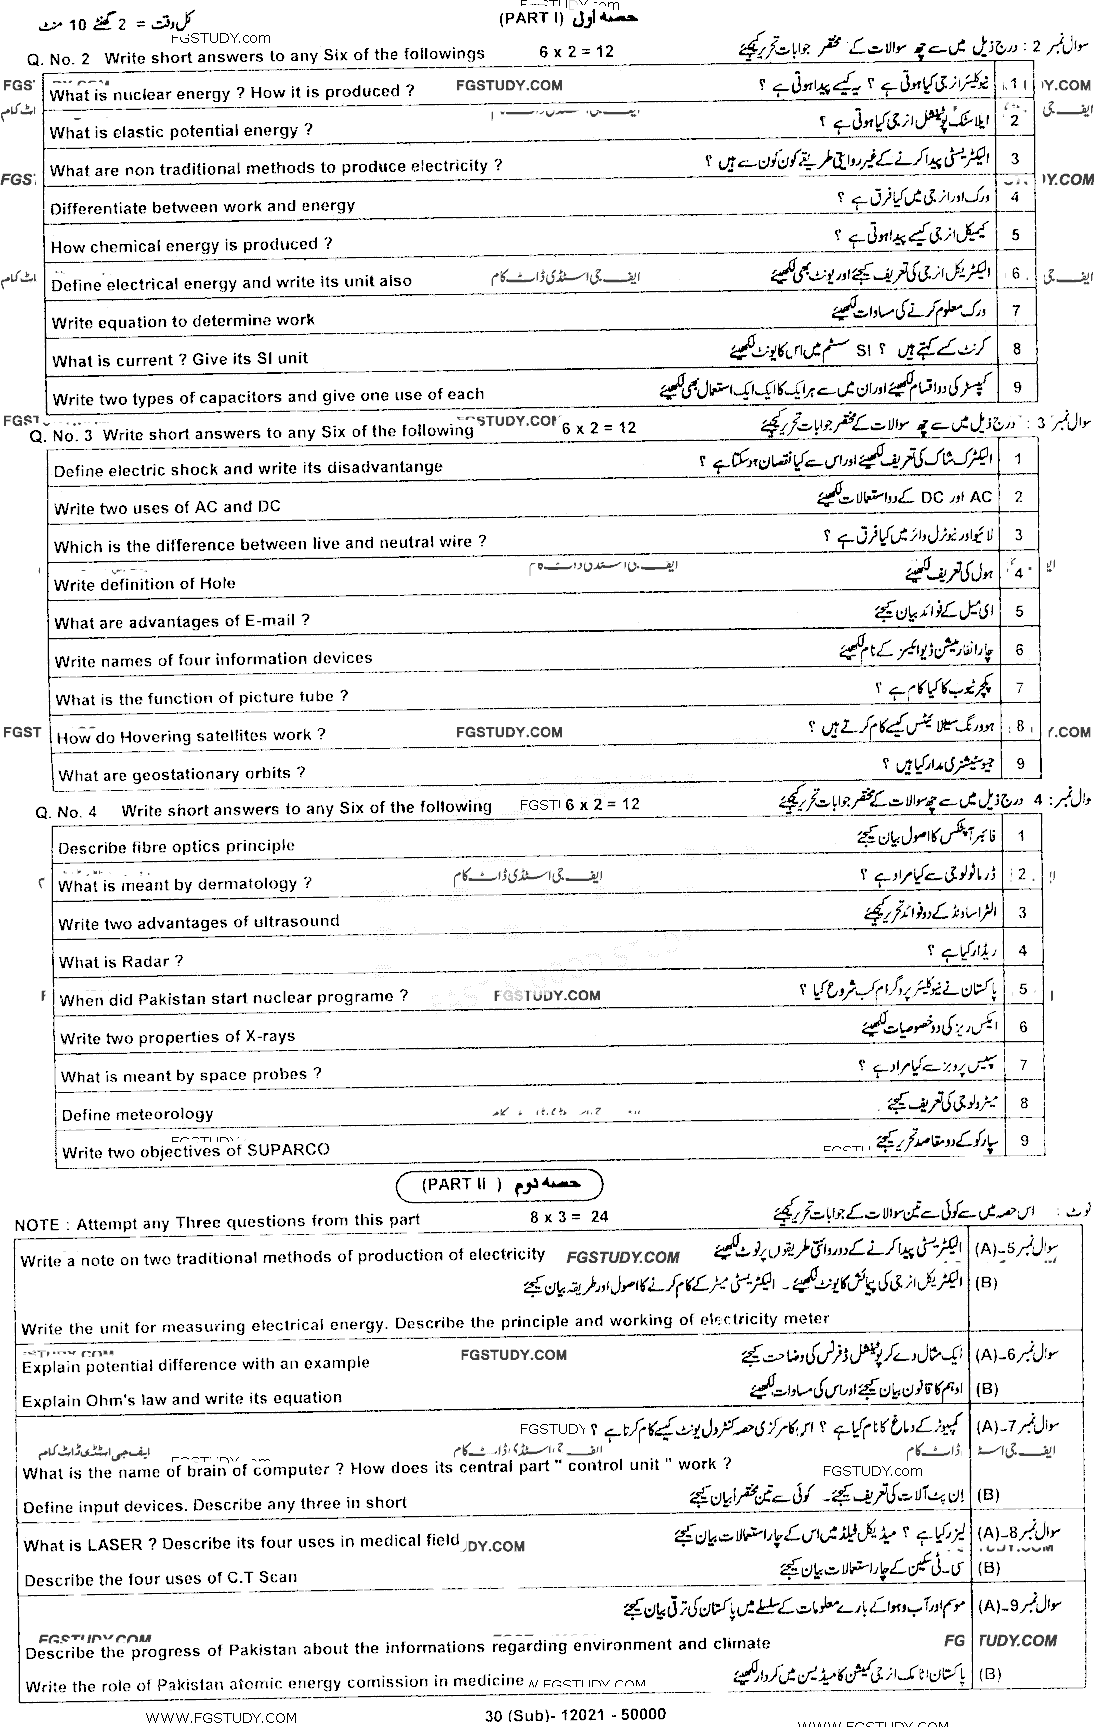 کل وقت = 2 گھنٹے 10 منٹ
FGSTUDY.com
(PART I) حصہ اول
Q. No. 2 Write short answers to any Six of the followings 6 x 2 = 12 سوال نمبر 2 : درج ذیل میں سے چھ سوالات کے مختصر جوابات تحریر کیجئے
What is nuclear energy ? How it is produced ? FGSTUDY.COM نیوکلیئر انرجی کیا ہوتی ہے ؟ یہ کیسے پیدا ہوتی ہے ؟ 1
What is elastic potential energy ? ایلاسٹک پوٹینشل انرجی کیا ہوتی ہے ؟ 2
What are non traditional methods to produce electricity ? الیکٹریسٹی پیدا کرنے کے غیر روایتی طریقے کون کون سے ہیں ؟ 3
Differentiate between work and energy ورک اور انرجی میں کیا فرق ہے ؟ 4
How chemical energy is produced ? کیمیکل انرجی کیسے پیدا ہوتی ہے ؟ 5
Define electrical energy and write its unit also ایف جی اسٹڈی ڈاٹ کام الیکٹریکل انرجی کی تعریف کیجئے اور یونٹ بھی لکھیئے 6
Write equation to determine work ورک معلوم کرنے کی مساوات لکھیئے 7
What is current ? Give its SI unit کرنٹ کسے کہتے ہیں ؟ SI سسٹم میں اس کا یونٹ لکھیئے 8
Write two types of capacitors and give one use of each کپیسٹر کی دو اقسام لکھیئے اور ان میں سے ہر ایک کا ایک ایک استعمال بھی لکھیئے 9
Q. No. 3 Write short answers to any Six of the following 6 x 2 = 12 سوال نمبر 3 : درج ذیل میں سے چھ سوالات کے مختصر جوابات تحریر کیجئے
Define electric shock and write its disadvantange الیکٹرک شاک کی تعریف لکھیئے اور اس سے کیا نقصان ہو سکتا ہے ؟ 1
Write two uses of AC and DC AC اور DC کے دو استعمالات لکھیئے 2
Which is the difference between live and neutral wire ? لائیو اور نیوٹرل وائر میں کیا فرق ہے ؟ 3
Write definition of Hole ایف جی اسٹڈی ڈاٹ کام ہول کی تعریف لکھیئے 4
What are advantages of E-mail ? ای میل کے فوائد بیان کیجئے 5
Write names of four information devices چار انفارمیشن ڈیوائسز کے نام لکھیئے 6
What is the function of picture tube ? پکچر ٹیوب کا کیا کام ہے ؟ 7
How do Hovering satellites work ? FGSTUDY.COM ہوورنگ سیٹلائیٹس کیسے کام کرتے ہیں ؟ 8
What are geostationary orbits ? جیوسٹیشنری مدار کیا ہیں ؟ 9
Q. No. 4 Write short answers to any Six of the following 6 x 2 = 12 سوال نمبر : 4 درج ذیل میں سے چھ سوالات کے مختصر جوابات تحریر کیجئے
Describe fibre optics principle فائبر آپٹکس کا اصول بیان کیجئے 1
What is meant by dermatology ? ایف جی اسٹڈی ڈاٹ کام ڈرماٹولوجی سے کیا مراد ہے ؟ 2
Write two advantages of ultrasound الٹراساؤنڈ کے دو فوائد تحریر کیجئے 3
What is Radar ? ریڈار کیا ہے ؟ 4
When did Pakistan start nuclear programe ? FGSTUDY.COM پاکستان نے نیوکلیئر پروگرام کب شروع کیا ؟ 5
Write two properties of X-rays ایکس ریز کی دو خصوصیات لکھیئے 6
What is meant by space probes ? سپیس پروبز سے کیا مراد ہے ؟ 7
Define meteorology میٹرولوجی کی تعریف کیجئے 8
Write two objectives of SUPARCO سپارکو کے دو مقاصد تحریر کیجئے 9
(PART II ) حصہ دوم
NOTE : Attempt any Three questions from this part 8 x 3 = 24 نوٹ : اس حصہ میں سے کوئی سے تین سوالات کے جوابات تحریر کیجئے
Write a note on two traditional methods of production of electricity FGSTUDY.COM الیکٹریسٹی پیدا کرنے کے دو روائتی طریقوں پر نوٹ لکھیئے سوال نمبر 5-(A)
الیکٹریکل انرجی کی پیمائش کا یونٹ لکھیئے ۔ الیکٹریسٹی میٹر کے کام کرنے کا اصول اور طریقہ بیان کیجئے (B)
Write the unit for measuring electrical energy. Describe the principle and working of electricity meter
Explain potential difference with an example FGSTUDY.COM ایک مثال دے کر پوٹینشل ڈفرنس کی وضاحت کیجئے سوال نمبر 6-(A)
Explain Ohm's law and write its equation اوہم کا قانون بیان کیجئے اور اس کی مساوات لکھیئے (B)
FGSTUDY کمپیوٹر کے دماغ کا نام کیا ہے ؟ اس کا مرکزی حصہ کنٹرول یونٹ کیسے کام کرتا ہے ؟ سوال نمبر 7-(A)
ایف جی اسٹڈی ڈاٹ کام
What is the name of brain of computer ? How does its central part " control unit " work ? FGSTUDY.com
Define input devices. Describe any three in short ان پٹ آلات کی تعریف کیجئے ۔ کوئی سے تین مختصراً بیان کیجئے (B)
What is LASER ? Describe its four uses in medical field لیزر کیا ہے ؟ میڈیکل فیلڈ میں اس کے چار استعمالات بیان کیجئے سوال نمبر 8-(A)
Describe the four uses of C.T Scan سی ۔ ٹی سکین کے چار استعمالات بیان کیجئے (B)
موسم اور آب و ہوا کے بارے معلومات کے سلسلے میں پاکستان کی ترقی بیان کیجئے سوال نمبر 9-(A)
Describe the progress of Pakistan about the informations regarding environment and climate
Write the role of Pakistan atomic energy comission in medicine پاکستان اٹامک انرجی کمیشن کا میڈیسن میں کردار لکھیئے (B)
WWW.FGSTUDY.COM 30 (Sub)- 12021 - 50000